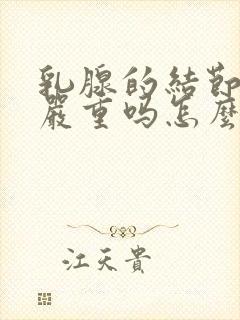 乳腺的結節
嚴重吗怎麼
江天貴